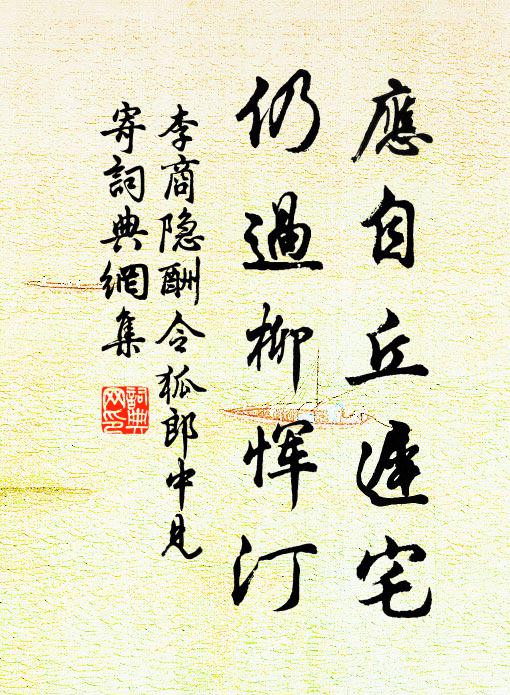 應自丘遲宅
仍過柳惲汀
李商隐酬令狐郎中見
寄詞典網集
詞典
网印